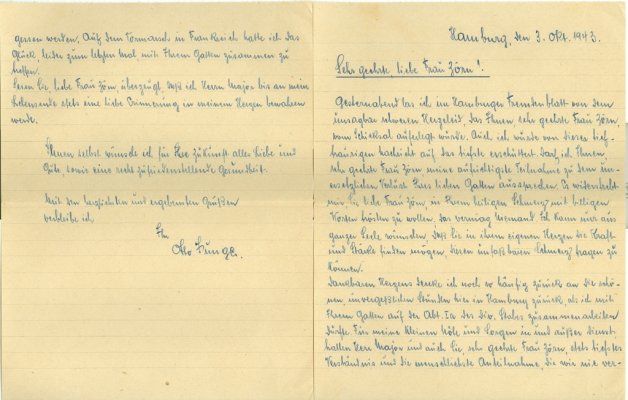 Hamburg, den 3. Okt. 1943.
Sehr geehrte liebe Frau Zörn!
Gesternabend las ich im Hamburger Fremdenblatt von dem
unsagbar schweren Herzeleid das Ihnen sehr geehrte Frau Zörn
vom Schicksal auferlegt wurde. Auch ich wurde von dieser tief-
traurigen Nachricht auf das tiefste erschüttert. Darf ich Ihnen,
sehr geehrte Frau Zörn meine aufrichtigste Teilnahme zu dem uner-
setzlichen Verlust Ihres lieben Gatten aussprechen. Es widerstrebt
mir, Sie liebe Frau Zörn, in Ihrem heiligen Schmerz mit billigen
Worten trösten zu wollen, das vermag niemand. Ich kann nur aus
ganzer Seele wünschen, daß Sie in ihrem eigenen Herzen die Kraft
und Stärke finden mögen, diesen unfaßbaren Schmerz tragen zu
können.
Dankbaren Herzens denke ich noch so häufig zurück an die schö-
nen, unvergeßlichen Stunden hier in Hamburg zurück, als ich mit
Ihrem Gatten auf der Abt. Ia des Div. Stabes zusammenarbeiten
durfte. Für meine kleinen Nöte und Sorgen in und außer Dienst
hatten Herr Major und auch Sie, sehr geehrte Frau Zörn, stets tiefstes
Verständnis und die menschlichste Anteilnahme, die wir nie ver-
gessen werden. Auf dem Vormarsch in Frankreich hatte ich das
Glück, leider zum letzten Mal mit Ihrem Gatten zusammen zu
treffen.
Seien Sie, liebe Frau Zörn, überzeugt, daß ich Herrn Major bis an mein
Lebensende stets eine liebe Erinnerung in meinem Herzen bewahren
werde.
Ihnen selbst wünsche ich für Ihre Zukunft alles Liebe und
Gute, sowie eine recht zufriedenstellende Gesundheit.
Mit den herzlichsten und ergebensten Grüßen
verbleibe ich
Ihr
Otto